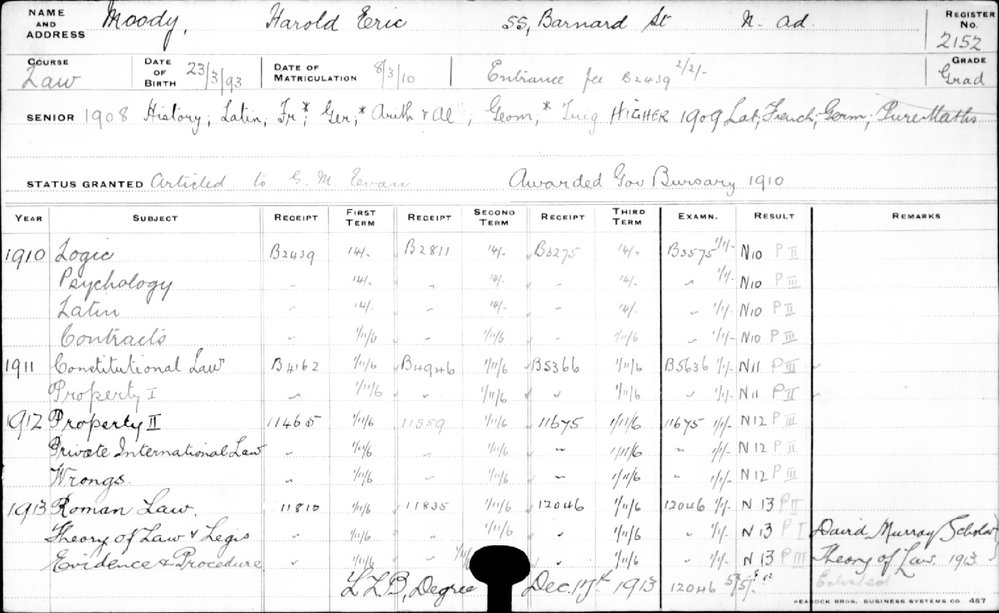 NAME AND ADDRESS Moody, Harold Eric 55, Barnard St N. Ad. REGISTER No. 2152
COURSE Law DATE OF BIRTH 23/3/93 DATE OF MATRICULATION 8/3/10 Entrance fee B2439 2/2/- GRADE Grad
SENIOR 1908 History, Latin, Fr*, Ger,* Arith & Al, Geom,* Trig HIGHER 1909 Lat; French; Germ; Pure Maths
STATUS GRANTED Articled to G. M. Evan Awarded Gov Bursary 1910
YEAR SUBJECT RECEIPT FIRST TERM RECEIPT SECOND TERM RECEIPT THIRD TERM EXAMN. RESULT REMARKS
1910 Logic B2439 14/- B2811 14/- B3275 14/- B3575 1/1/- N10 P II
Psychology " 14/- " 14/- " 14/- " 1/1/- N10 P III
Latin " 14/- " 14/- " 14/- " 1/1/- N10 P II
Contracts " 1/11/6 " 1/11/6 " 1/11/6 " 1/1/- N10 P III
1911 Constitutional Law B4162 1/11/6 B4946 1/11/6 B5366 1/11/6 B5636 1/1/- N11 P III
Property I " 1/11/6 " 1/11/6 " 1/11/6 " 1/1/- N11 P II
1912 Property II 11465 1/11/6 11559 1/11/6 11675 1/11/6 11675 1/1/- N12 P III
Private International Law " 1/11/6 " 1/11/6 " 1/11/6 " 1/1/- N12 P II
Wrongs. " 1/11/6 " 1/11/6 " 1/11/6 " 1/1/- N12 P III
1913 Roman Law. 11810 1/11/6 11835 1/11/6 12046 1/11/6 12046 1/1/- N 13 P II
Theory of Law & Legis " 1/11/6 " 1/11/6 " 1/11/6 " 1/1/- N 13 P I David Murray Scholar
Evidence & Procedure. " 1/11/6 " 1/11/6 " 1/11/6 " 1/1/- N 13 P III Theory of Law. 1913.
LLB, Degree Dec. 17th 1913 12046 5/5/- Enlisted
PEACOCK BROS. BUSINESS SYSTEMS CO 457